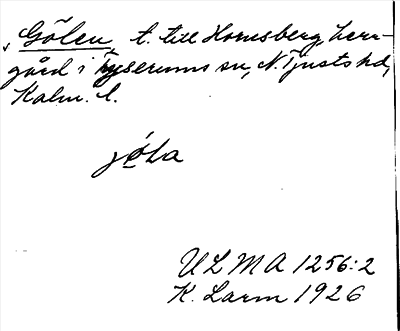 Gölen, t. till Hornsberg, herr-
gård i Tryserums sn, N. Tjusts hd,
Kalm. l.
jö̲La
ULMA 1256:2
K. Larm 1926